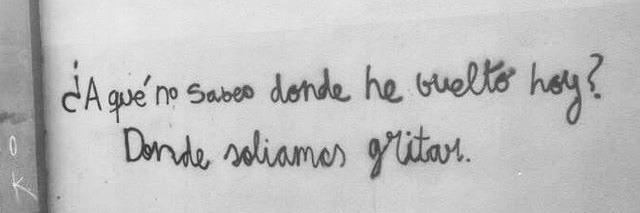 ¿A qué no sabes donde he vuelto hoy?
Donde soliamos gritar.
O
K